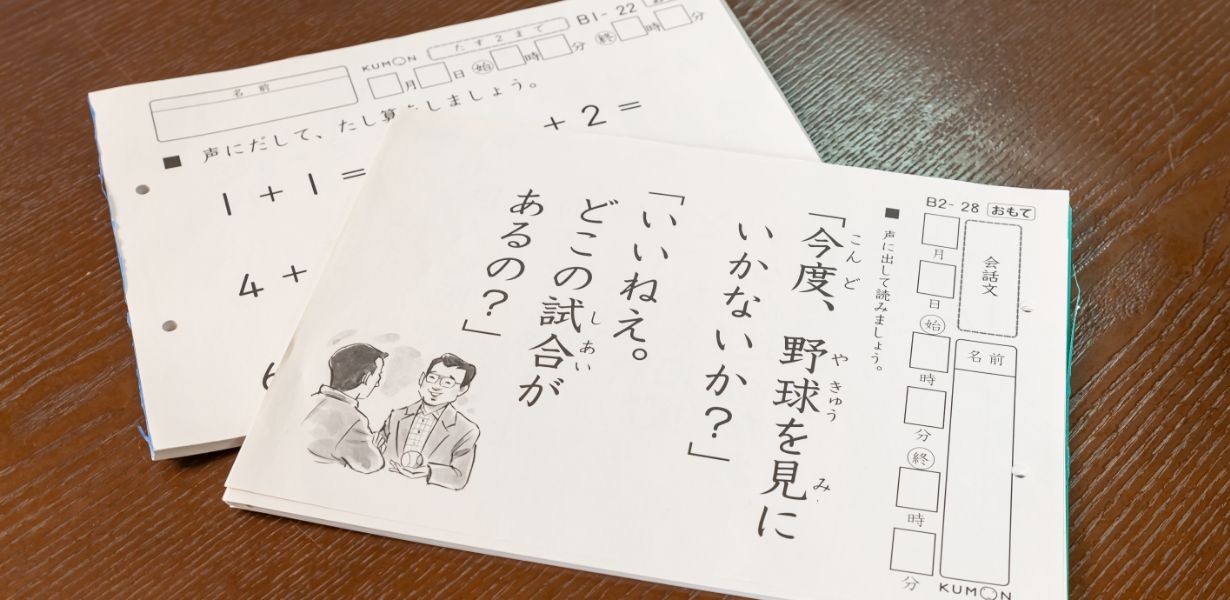 B1- 22
たす2まで
KUMON
名前
月 日 始 時 分 終 時 分
声にだして、たし算をしましょう。
1 + 1 =
+ 2 =
4 +
B2- 28 おもて
会話文
名前
月 日 始 時 分 終 時 分
KUMON
声に出して読みましょう。
「今度、野球を見に
こんど やきゅう み
いかないか?」
「いいねえ。
どこの試合が
しあい
あるの?」